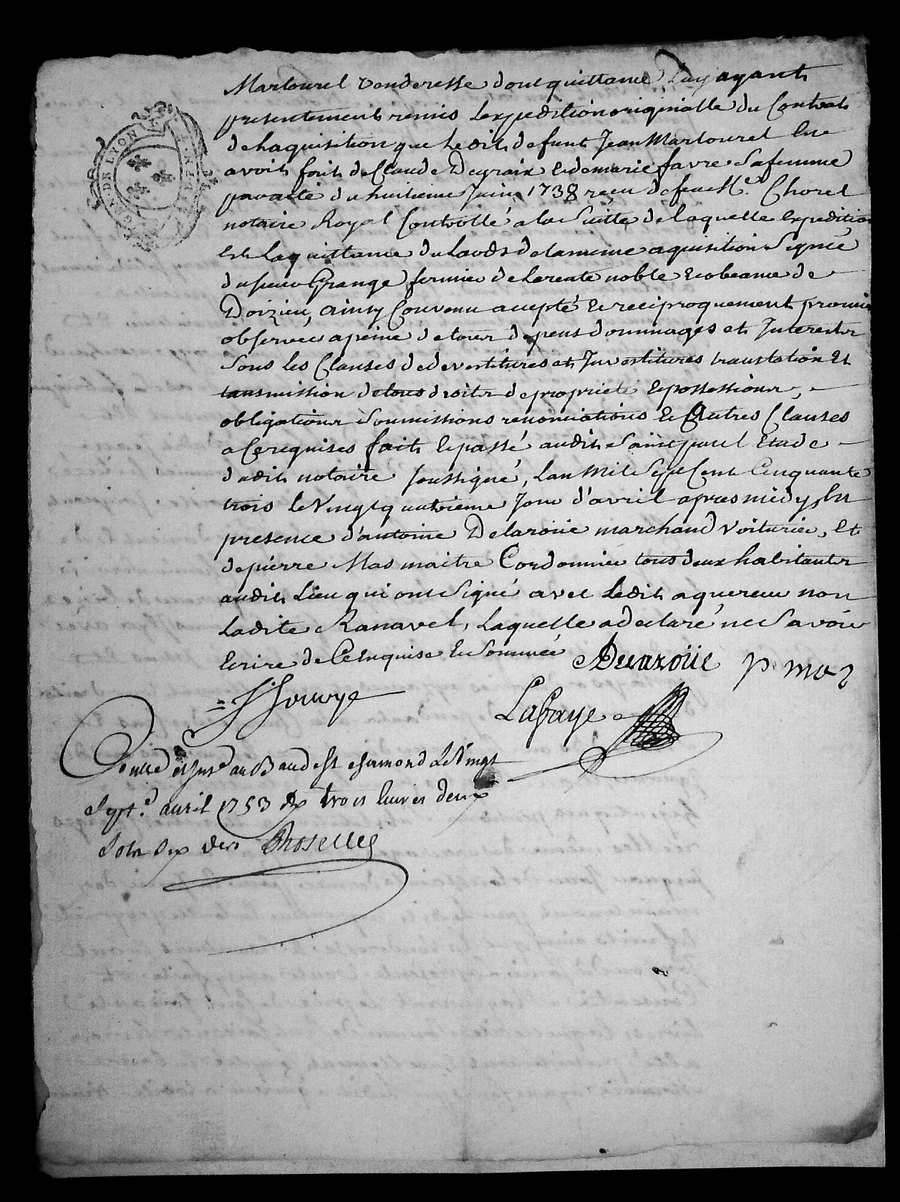 GEN. DE LYON
Martourel Venderesse dont quittance Luy ayant
presentement remis Lexpedition originalle du Contrat
de Laquisition que Ledit defunt Jean Martourel Luy
avoit fait de Claude Degraix Et de marie favre Sa femme
pavalté du huitieme Juin 1738 reçu de feu Me. Chorel
notaire Royal Controllé a la Suitte de laquelle Expedition
Est La quittance du Lauds de la meme aquisition Signée
du sieur Grange fermier de La rente noble de
Doizieu, ainsy Convenu accepté Et reciproquement promis
observer a peine de tous depens dommages et Interests
Sous les Clauses de devestitures et Investitures translation Et
transmission de tous droits de proprieté Et possessions,
obligations Soumissions renonciations Et Autres Clauses
a Ce requises fait Et passé audit Saint paul Etude
dudit notaire soussigné, Lan Mil Sept Cent Cinquante
trois Le Vingt quatrieme Jour d'avril apres midy En
presence d'antoine Delaroüe marchand Voiturier, Et
de pierre Mas maitre Cordonnier tous deux habitants
audit Lieu qui ont Signé avec Ledit aquereur non
Ladite Ranavel, Laquelle a declaré ne Savoir
Ecrire de Ce Enquise Et Sommée
Delaroüe p. mas
J Jouvye
Lafaye
Conllé et Insé au B au de St chamond Le Vingt
Sept.e avril 1753 Rx trois Livres deux
Sols Six ders Broselles